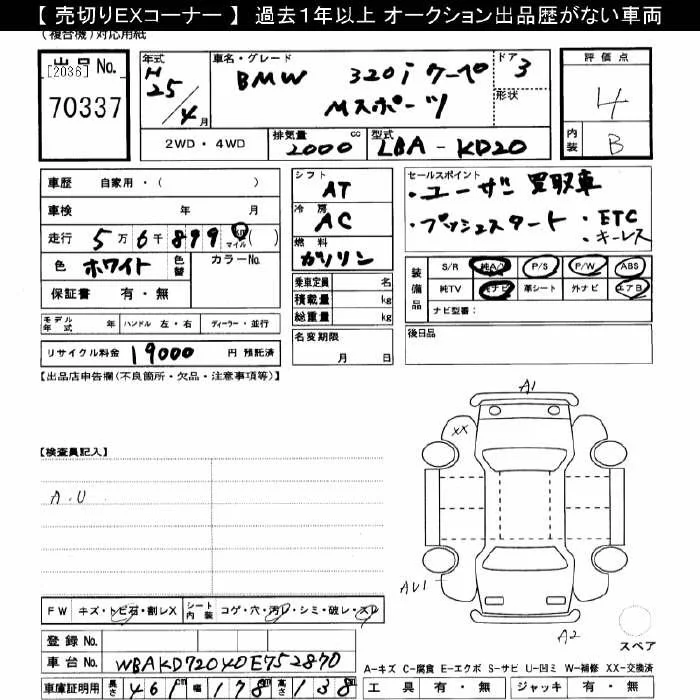 【 売切りEXコーナー 】 過去1年以上 オークション出品歴がない車両
(複合機)対応用紙
出品 No.
[2036]
70337
年式
H25/4月
車名・グレード
BMW 320i クーペ
Mスポーツ
ドア
3
形状
評価点
4
内装
B
2WD・4WD
排気量
2000 cc
型式
LBA-KD20
車歴 自家用・( )
車検 年 月
走行 5万6千899 km マイル ( )
色 ホワイト
色替
カラーNo.
保証書 有・無
シフト
AT
冷房
AC
燃料
ガソリン
乗車定員 名
積載量 kg
総重量 kg
セールスポイント
・ユーザー買取車
・プッシュスタート ・ETC
・キーレス
装備品
S/R 純A/W P/S P/W ABS
純TV 純ナビ 革シート 外ナビ エアB
ナビ型番:
モデル年式 年 ハンドル 左・右 ディーラー・並行
名変期限
月 日
後日品
リサイクル料金 19000 円 預託済
【出品店申告欄(不良箇所・欠品・注意事項等)】
A1
XX
【検査員記入】
A.U
AU1
A2
スペア
FW キズ・トビ石・割レX
シート内装 コゲ・穴・汚レ・シミ・破レ・スレ
登録 No.
車台 No. WBAKD72040E752870
車庫証明用 長さ 461 cm 幅 178 cm 高さ 138 cm
A-キズ C-腐食 E-エクボ S-サビ U-凹ミ W-補修 XX-交換済
工具 有・無 ジャッキ 有・無